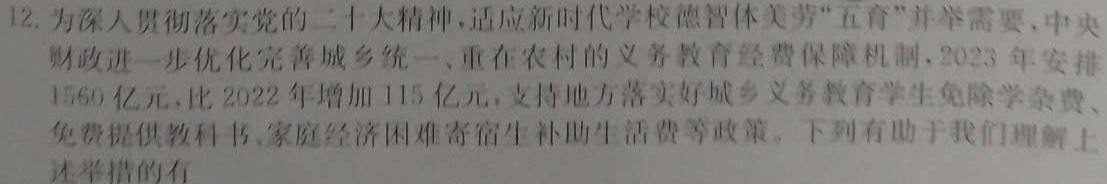 12. 为深入贯彻落实党的二十大精神,适应新时代学校德智体美劳“五育”并举需要,中央
财政进一步优化完善城乡统一、重在农村的义务教育经费保障机制,2023 年安排
1560 亿元,比 2022 年增加 115 亿元,支持地方落实好城乡义务教育学生免除学杂费、
免费提供教科书、家庭经济困难寄宿生补助生活费等政策。下列有助于我们理解上
述举措的有